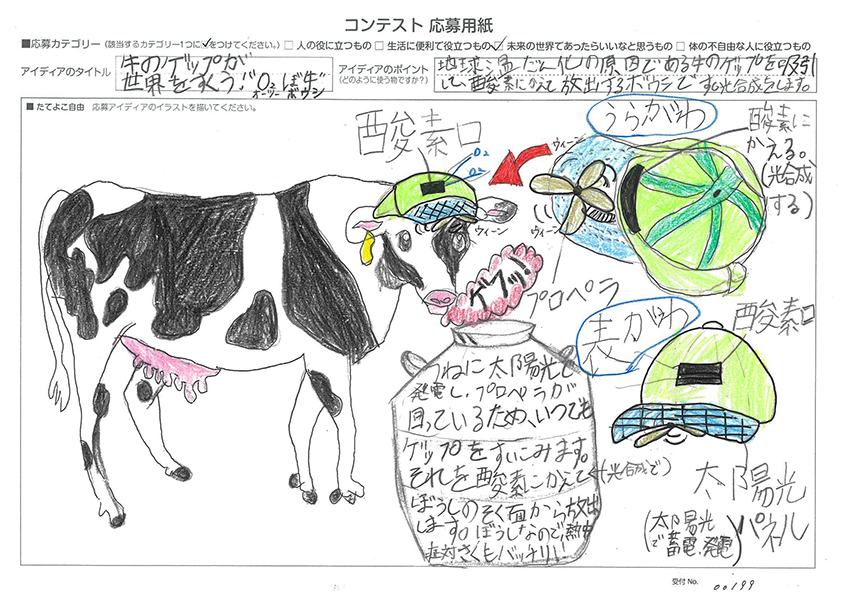 コンテスト 応募用紙
■応募カテゴリー(該当するカテゴリー1つに✓をつけてください。) □ 人の役に立つもの □ 生活に便利で役立つもの ☑ 未来の世界であったらいいなと思うもの □ 体の不自由な人に役立つもの
アイディアのタイトル
牛のゲップが
世界をすくう!!O₂ぼ牛
オーツー ボウシ
アイディアのポイント
(どのように使う物ですか?)
地球温だん化の原因である牛のゲップを吸引
して、酸素にかえて放出するボウシです。光合成もします。
■ たてよこ自由 応募アイディアのイラストを描いてください。
酸素口
O₂
O₂
ウィーン
ゲフッ!
うらがわ
ウィーン
ウィーン
プロペラ
酸素に
かえる。
(光合成
する)
表がわ
酸素口
太陽光
パネル
(太陽光
で蓄電、発電)
つねに太陽光で
発電し、プロペラが
回っているため、いつでも
ゲップをすいこみます。
それを酸素にかえて(光合成で)
ぼうしのそく面から放出
します。ぼうしなので、熱中
症対さくもバッチリ!!
受付 No.
00199